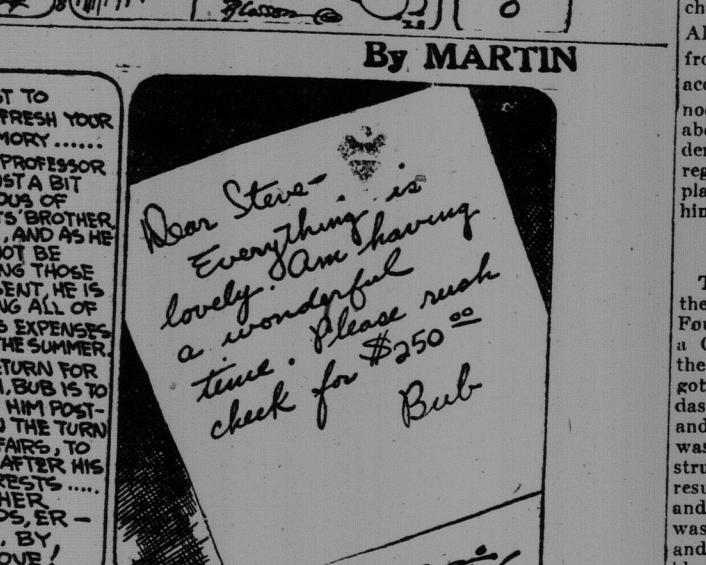 By MARTIN
ST TO
FRESH YOUR
MORY......
PROFESSOR
UST A BIT
OUS OF
TS' BROTHER
, AND AS HE
NOT BE
NG THOSE
SENT, HE IS
NG ALL OF
S EXPENSES
THE SUMMER.
ETURN FOR
, BUB IS TO
HIM POST-
N THE TURN
FAIRS, TO
AFTER HIS
RESTS.....
HER
DS, ER —
, BY
OVE!
Dear Steve-
Everything is
lovely. Am having
a wonderful
time. Please rush
check for $250 00
Bub
ch
fro
acc
no
abo
der
reg
pla
him
T
the
Fou
a C
the
got
das
and
was
stru
resu
and
was
and